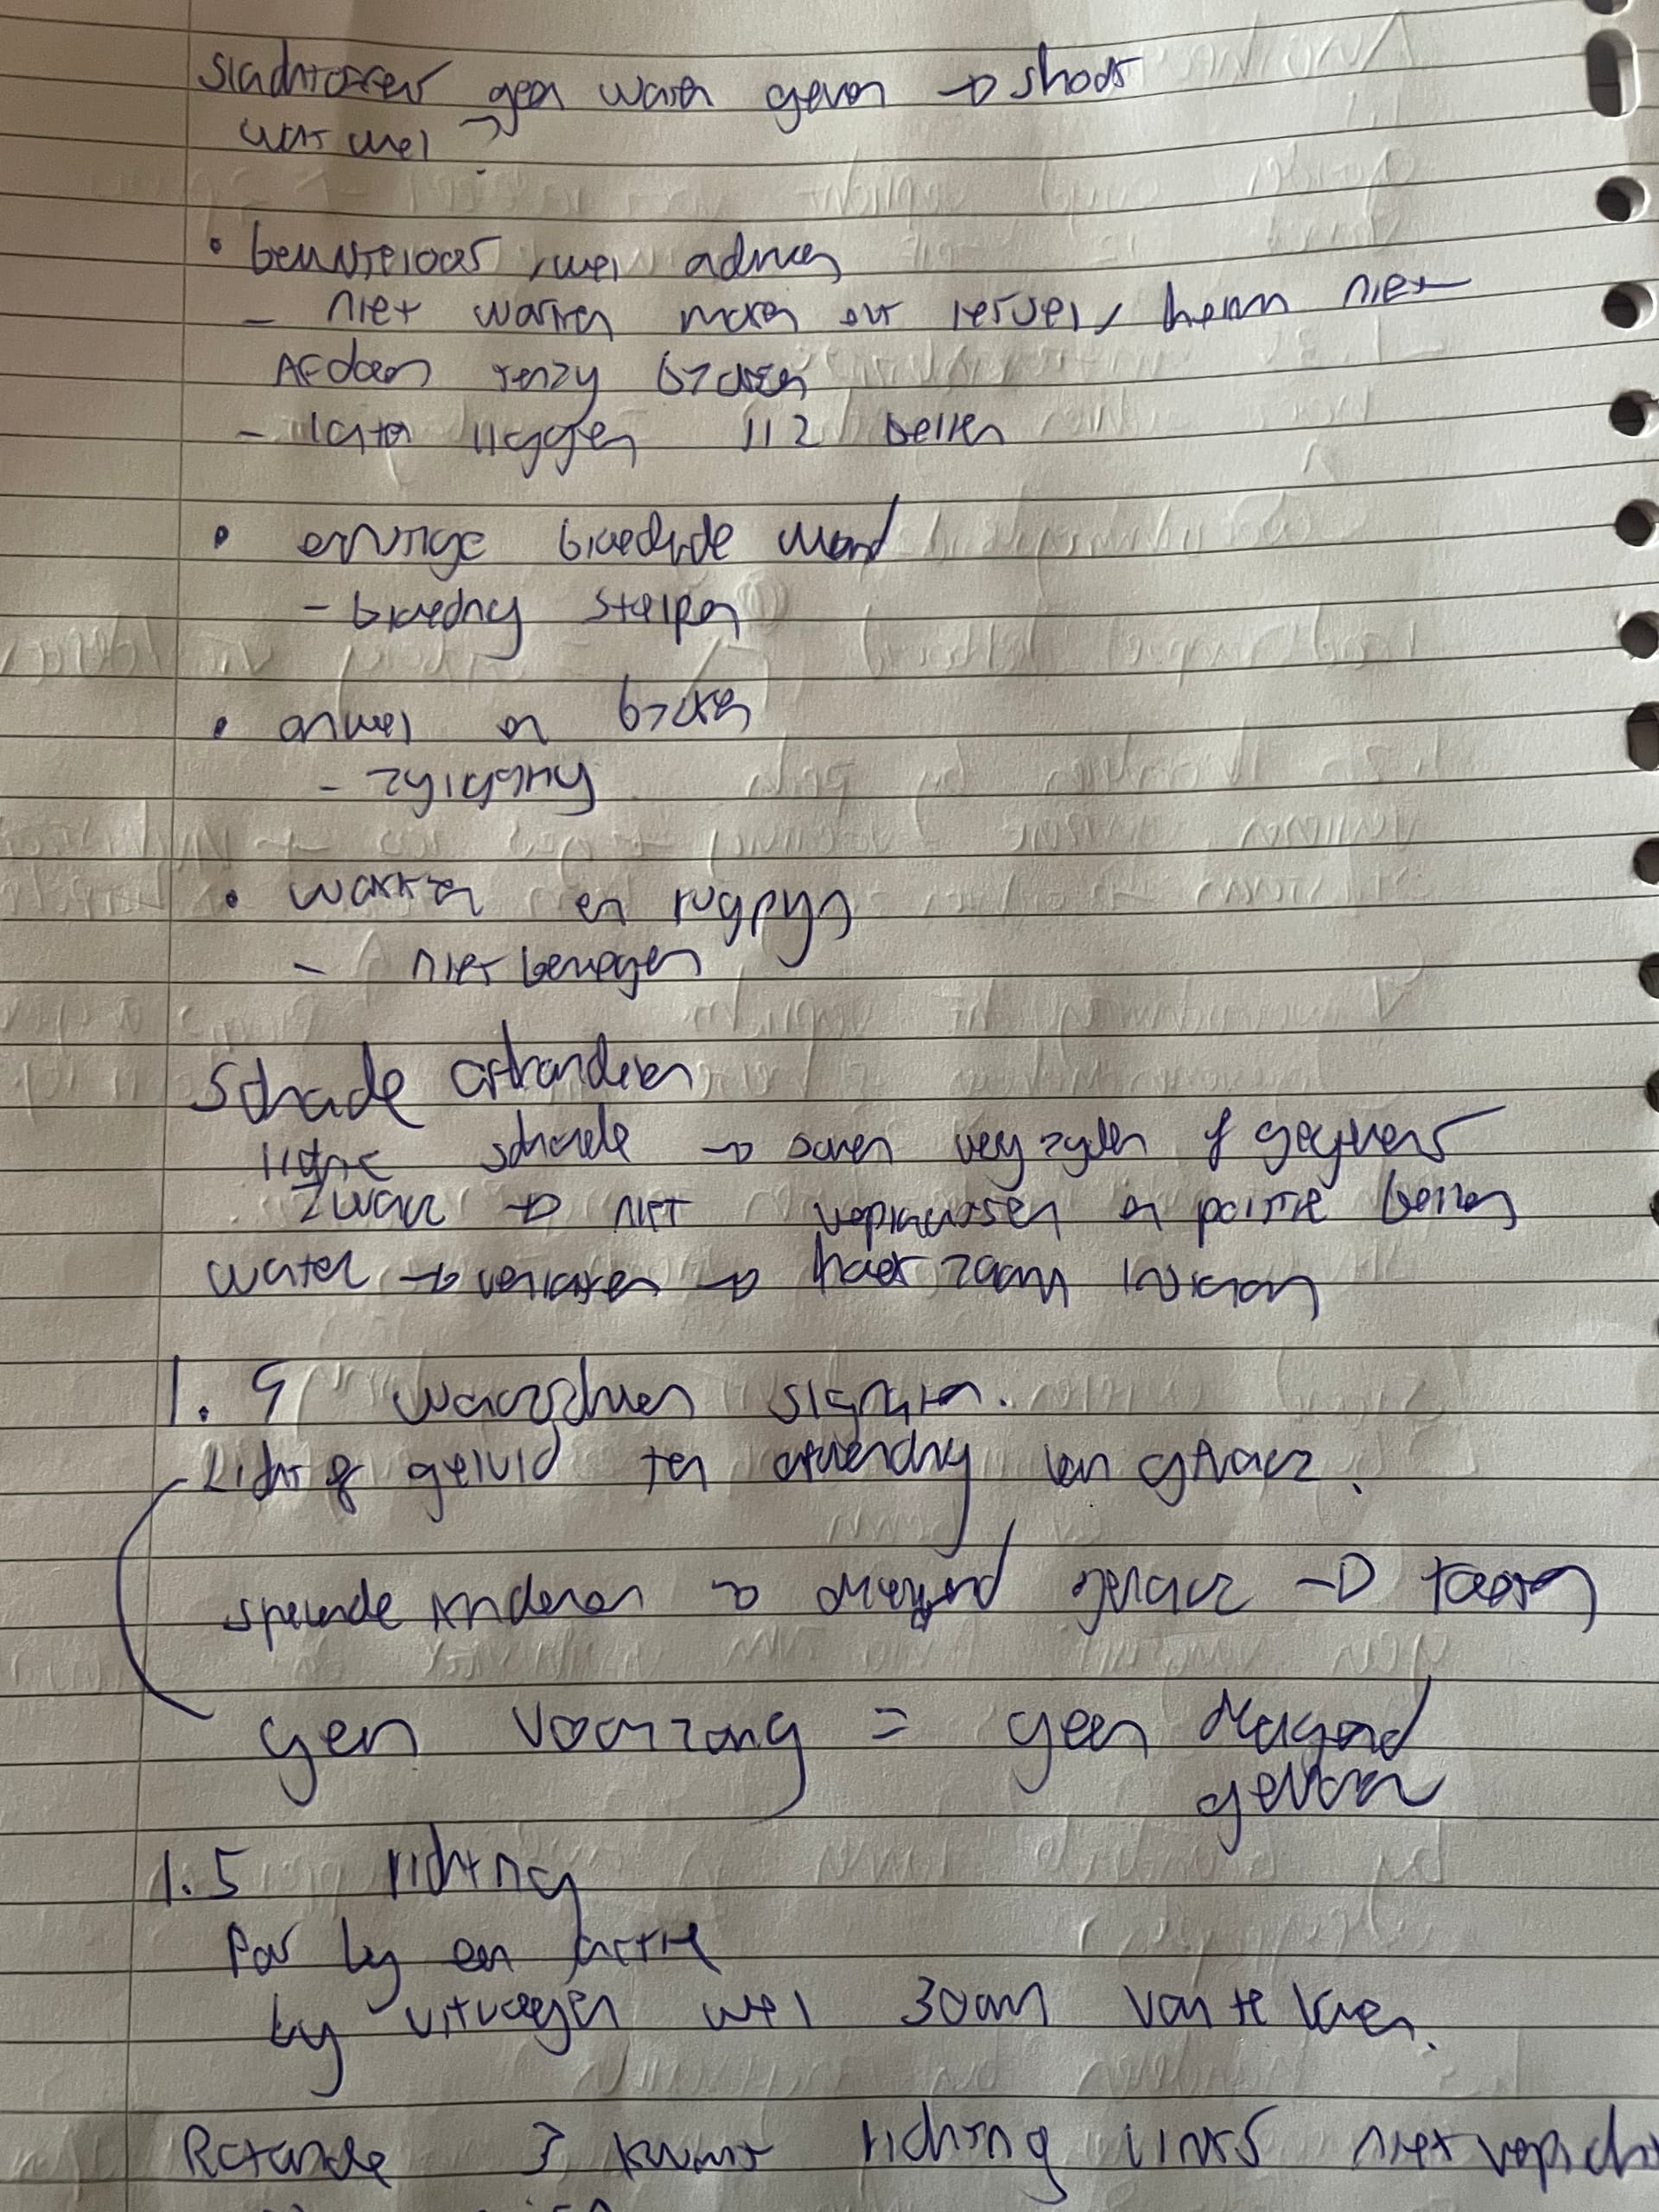 Slachtoffers geen water geven → shock
wat wel?
• bewusteloos, wel ademen
- niet wakker maken, helm niet
Afdoen tenzij braken
- laten liggen 112 bellen
• ernstige bloedende wond
- bloeding stelpen
• onwel en braken
- zijligging
• wakker en rugpijn
- niet bewegen
Schade afhandelen
lichte schade → samen wegzijden of gegevens
zwaar → niet verplaatsen en politie bellen
water → verlaten → raam
1.4 waarschuwen signalen.
Licht & geluid ten afwending van gevaar.
spelende kinderen → dreigend gevaar → toeteren
geen voorrang = geen dreigend
gevaar
1.5 richting
Pas bij een actie
bij uitvoegen wel 300m van te voren.
Rotonde 3 kwart richting links niet verplicht